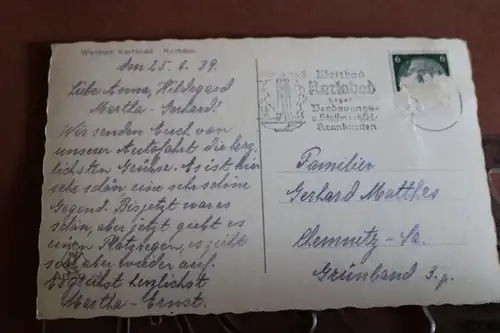 Weltbad Karlsbad Kurhaus
den 25. 6. 39.
Liebe Anna, Hildegard
Martha-Gerhard!
Wir senden Euch von
unserer Autofahrt die herz-
lichsten Grüsse. Es ist hier
sehr schön eine sehr schöne
Gegend. Bis jetzt war es
schön, aber jetzt giebt es
einen Platzregen, es
aber wieder auf.
Es grüsst herzlichst
Martha-Ernst.
Weltbad
Karlsbad
gegen
Verdauungs-
u. Stoffwechsel-
Krankheiten
6 6
Familien
Gerhard Matthes
Chemnitz-Sa.
Grünband 3. p.